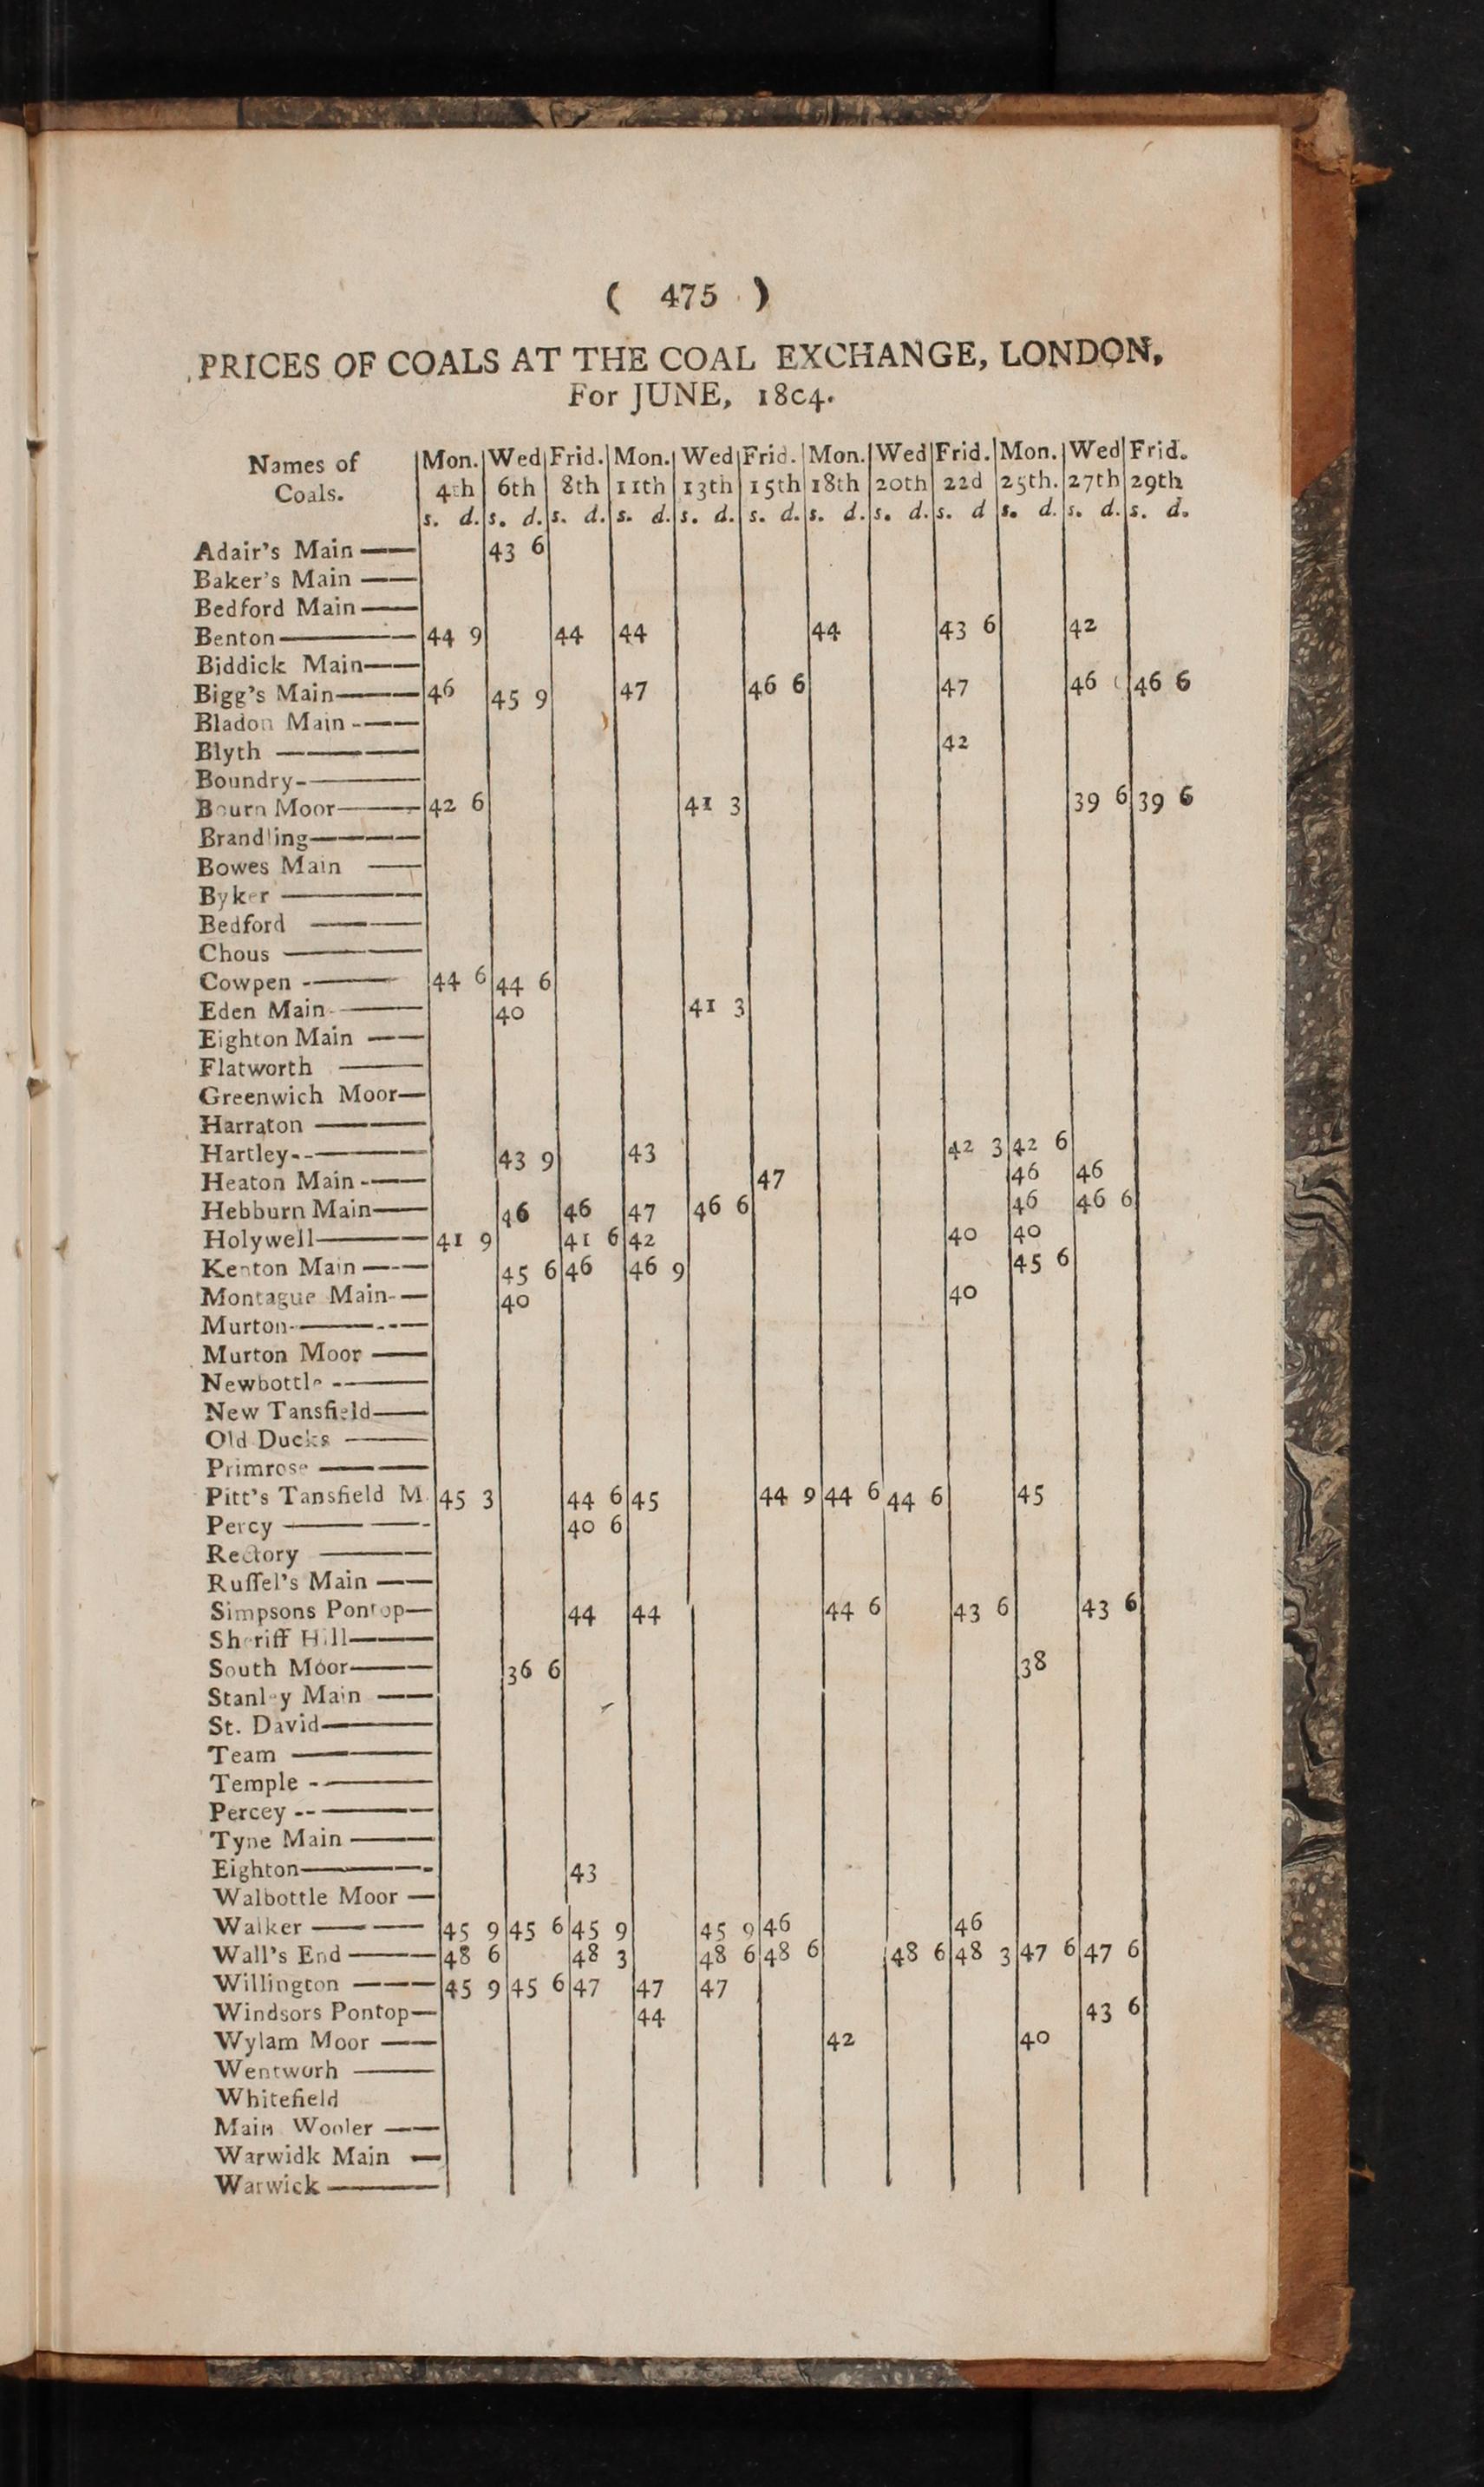 ( 475 )
PRICES OF COALS AT THE COAL EXCHANGE, LONDON,
For JUNE, 18c4.
Names of Coals. | Mon. 4th | Wed 6th | Frid. 8th | Mon. 11th | Wed 13th | Frid. 15th | Mon. 18th | Wed 20th | Frid. 22d | Mon. 25th. | Wed 27th | Frid. 29th
s. d. | s. d. | s. d. | s. d. | s. d. | s. d. | s. d. | s. d. | s. d | s. d. | s. d. | s. d.
Adair's Main —— | | 43 6
Baker's Main ——
Bedford Main ——
Benton —— | 44 9 | | 44 | 44 | | | 44 | | 43 6 | | 42 |
Biddick Main ——
Bigg's Main —— | 46 | 45 9 | | 47 | | 46 6 | | | 47 | | 46 | 46 6
Bladon Main ——
Blyth —— | | | | | | | | | 42
Boundry ——
Bourn Moor —— | 42 6 | | | | 41 3 | | | | | | 39 6 | 39 6
Brandling ——
Bowes Main ——
Byker ——
Bedford ——
Chous ——
Cowpen —— | 44 6 | 44 6
Eden Main —— | | 40 | | | 41 3
Eighton Main ——
Flatworth ——
Greenwich Moor—
Harraton ——
Hartley —— | | 43 9 | | 43 | | | | | 42 3 | 42 6
Heaton Main —— | | | | | | 47 | | | | 46 | 46
Hebburn Main —— | | 46 | 46 | 47 | 46 6 | | | | | 46 | 46 6
Holywell —— | 41 9 | | 41 6 | 42 | | | | | 40 | 40
Kenton Main —— | | 45 6 | 46 | 46 9 | | | | | | 45 6
Montague Main — | | 40 | | | | | | | 40
Murton ——
Murton Moor ——
Newbottle ——
New Tansfield ——
Old Ducks ——
Primrose ——
Pitt's Tansfield M. | 45 3 | | 44 6 | 45 | | 44 9 | 44 6 | 44 6 | | 45
Percy —— | | | 40 6
Rectory ——
Ruffel's Main ——
Simpsons Pontop— | | | 44 | 44 | | | 44 6 | | 43 6 | | 43 6
Sheriff Hill ——
South Moor —— | | 36 6 | | | | | | | | 38
Stanley Main ——
St. David ——
Team ——
Temple ——
Percey ——
Tyne Main ——
Eighton —— | | | 43
Walbottle Moor —
Walker —— | 45 9 | 45 6 | 45 9 | | 45 9 | 46 | | | 46
Wall's End —— | 48 6 | | 48 3 | | 48 6 | 48 6 | | 48 6 | 48 3 | 47 6 | 47 6
Willington —— | 45 9 | 45 6 | 47 | 47 | 47
Windsors Pontop— | | | | 44 | | | | | | | 43 6
Wylam Moor —— | | | | | | | 42 | | | 40
Wentworh ——
Whitefield
Main Wooler ——
Warwidk Main —
Warwick ——